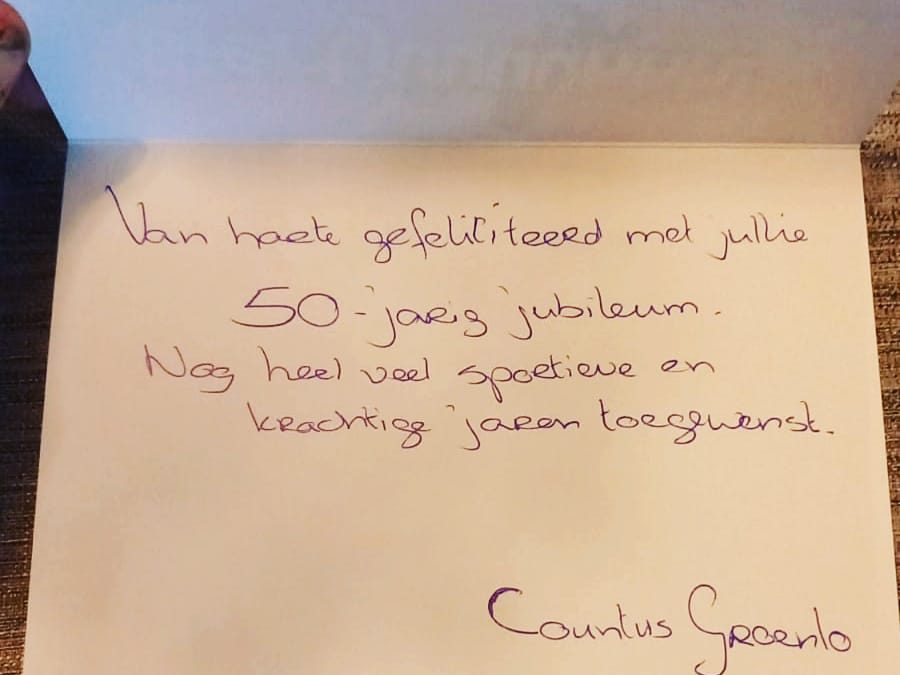 Van harte gefeliciteerd met jullie
50-jarig jubileum.
Nog heel veel sportieve en
krachtige jaren toegewenst.
Countus Groenlo